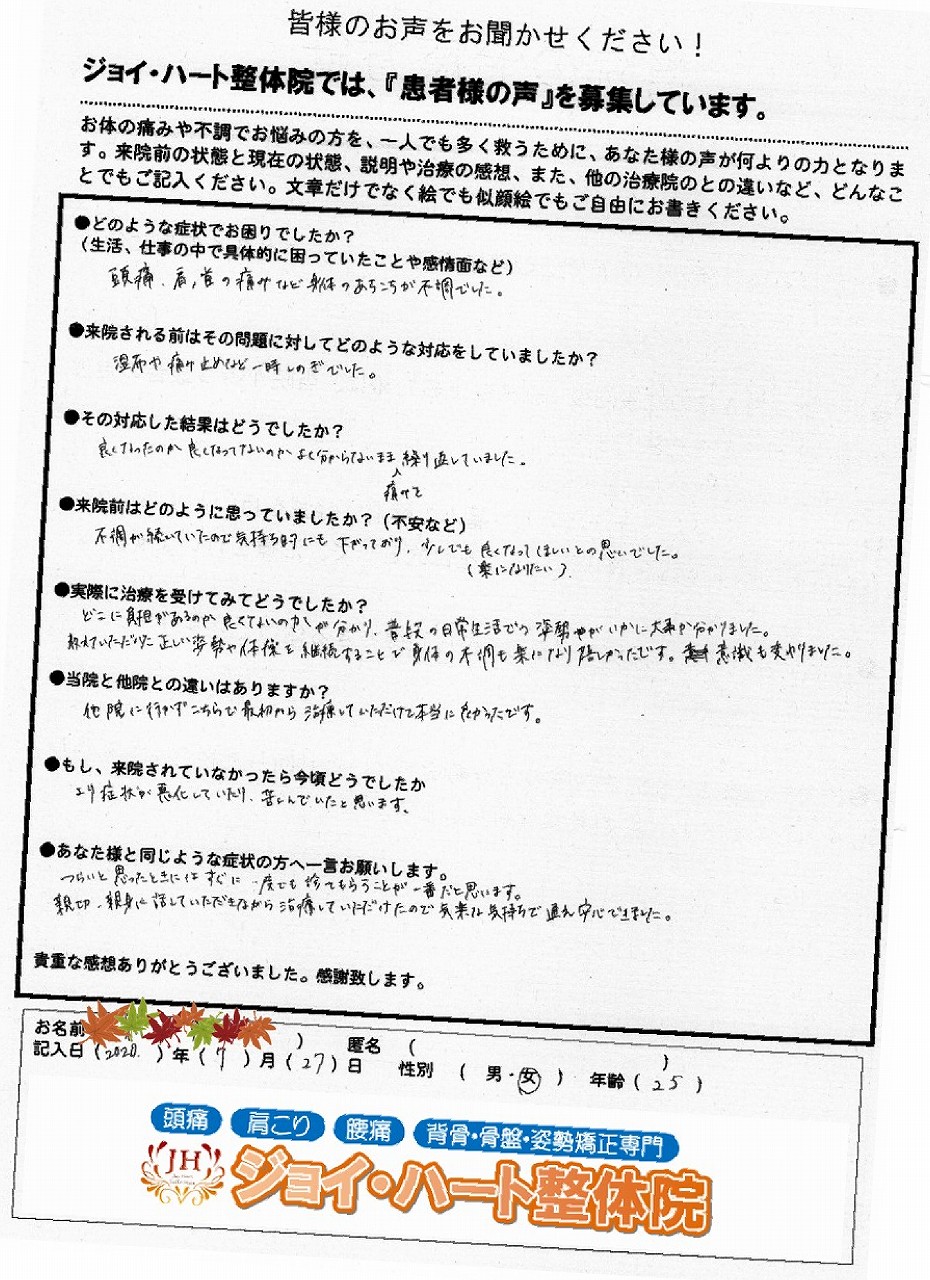 皆様のお声をお聞かせください！
ジョイ・ハート整体院では、『患者様の声』を募集しています。
お体の痛みや不調でお悩みの方を、一人でも多く救うために、あなた様の声が何よりの力となりま
す。来院前の状態と現在の状態、説明や治療の感想、また、他の治療院のとの違いなど、どんなこ
とでもご記入ください。文章だけでなく絵でも似顔絵でもご自由にお書きください。
●どのような症状でお困りでしたか？
（生活、仕事の中で具体的に困っていたことや感情面など）
頭痛、肩、首の痛みなど身体のあちこちが不調でした。
●来院される前はその問題に対してどのような対応をしていましたか？
湿布や痛み止めなど一時しのぎでした。
●その対応した結果はどうでしたか？
良くなったのか良くなってないのかよく分からないまま繰り返していました。
痛みを
●来院前はどのように思っていましたか？（不安など）
不調が続いていたので気持ち的にも下がっており、少しでも良くなってほしいとの思いでした。
（楽になりたい）
●実際に治療を受けてみてどうでしたか？
どこに負担があるのか良くないのかが分かり、普段の日常生活での姿勢がいかに大事か分かりました。
教えていただいた正しい姿勢や体操を継続することで身体の不調も楽になり嬉しかったです。意識も変わりました。
●当院と他院との違いはありますか？
他院に行かずこちらで最初から治療していただけて本当に良かったです。
●もし、来院されていなかったら今頃どうでしたか
より症状が悪化していたり、苦しんでいたと思います。
●あなた様と同じような症状の方へ一言お願いします。
つらいと思ったときにはすぐに一度でも診てもらうことが一番だと思います。
親切、親身に話していただきながら治療していただけたので気楽な気持ちで通え安心できました。
貴重な感想ありがとうございました。感謝致します。
お名前 ） 匿名 （ ）
記入日（2020.）年（7）月（27）日 性別 （ 男・女 ） 年齢（25）
頭痛 肩こり 腰痛 背骨・骨盤・姿勢矯正専門
JH ジョイ・ハート整体院